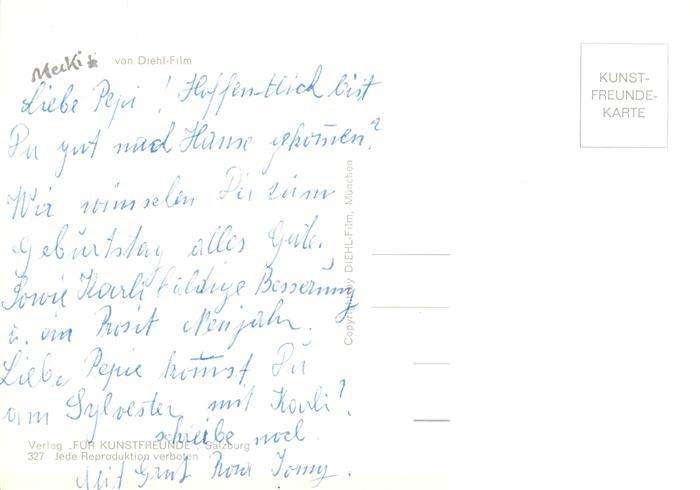 Mecki
von Diehl-Film
KUNST-
FREUNDE-
KARTE
Liebe Pepi! Hoffentlich bist
Du gut nach Hause gekommen?
Wir wünschen Dir zum
Geburtstag alles Gute.
Sowie Karli baldige Besserung
u. ein Prosit Neujahr.
Liebe Pepie kommst Du
am Sylvester mit Karli?
schreibe noch.
Mit Gruß Tomy.
Copyright by DIEHL-Film, München
Verlag „FÜR KUNSTFREUNDE", Salzburg
327 Jede Reproduktion verboten